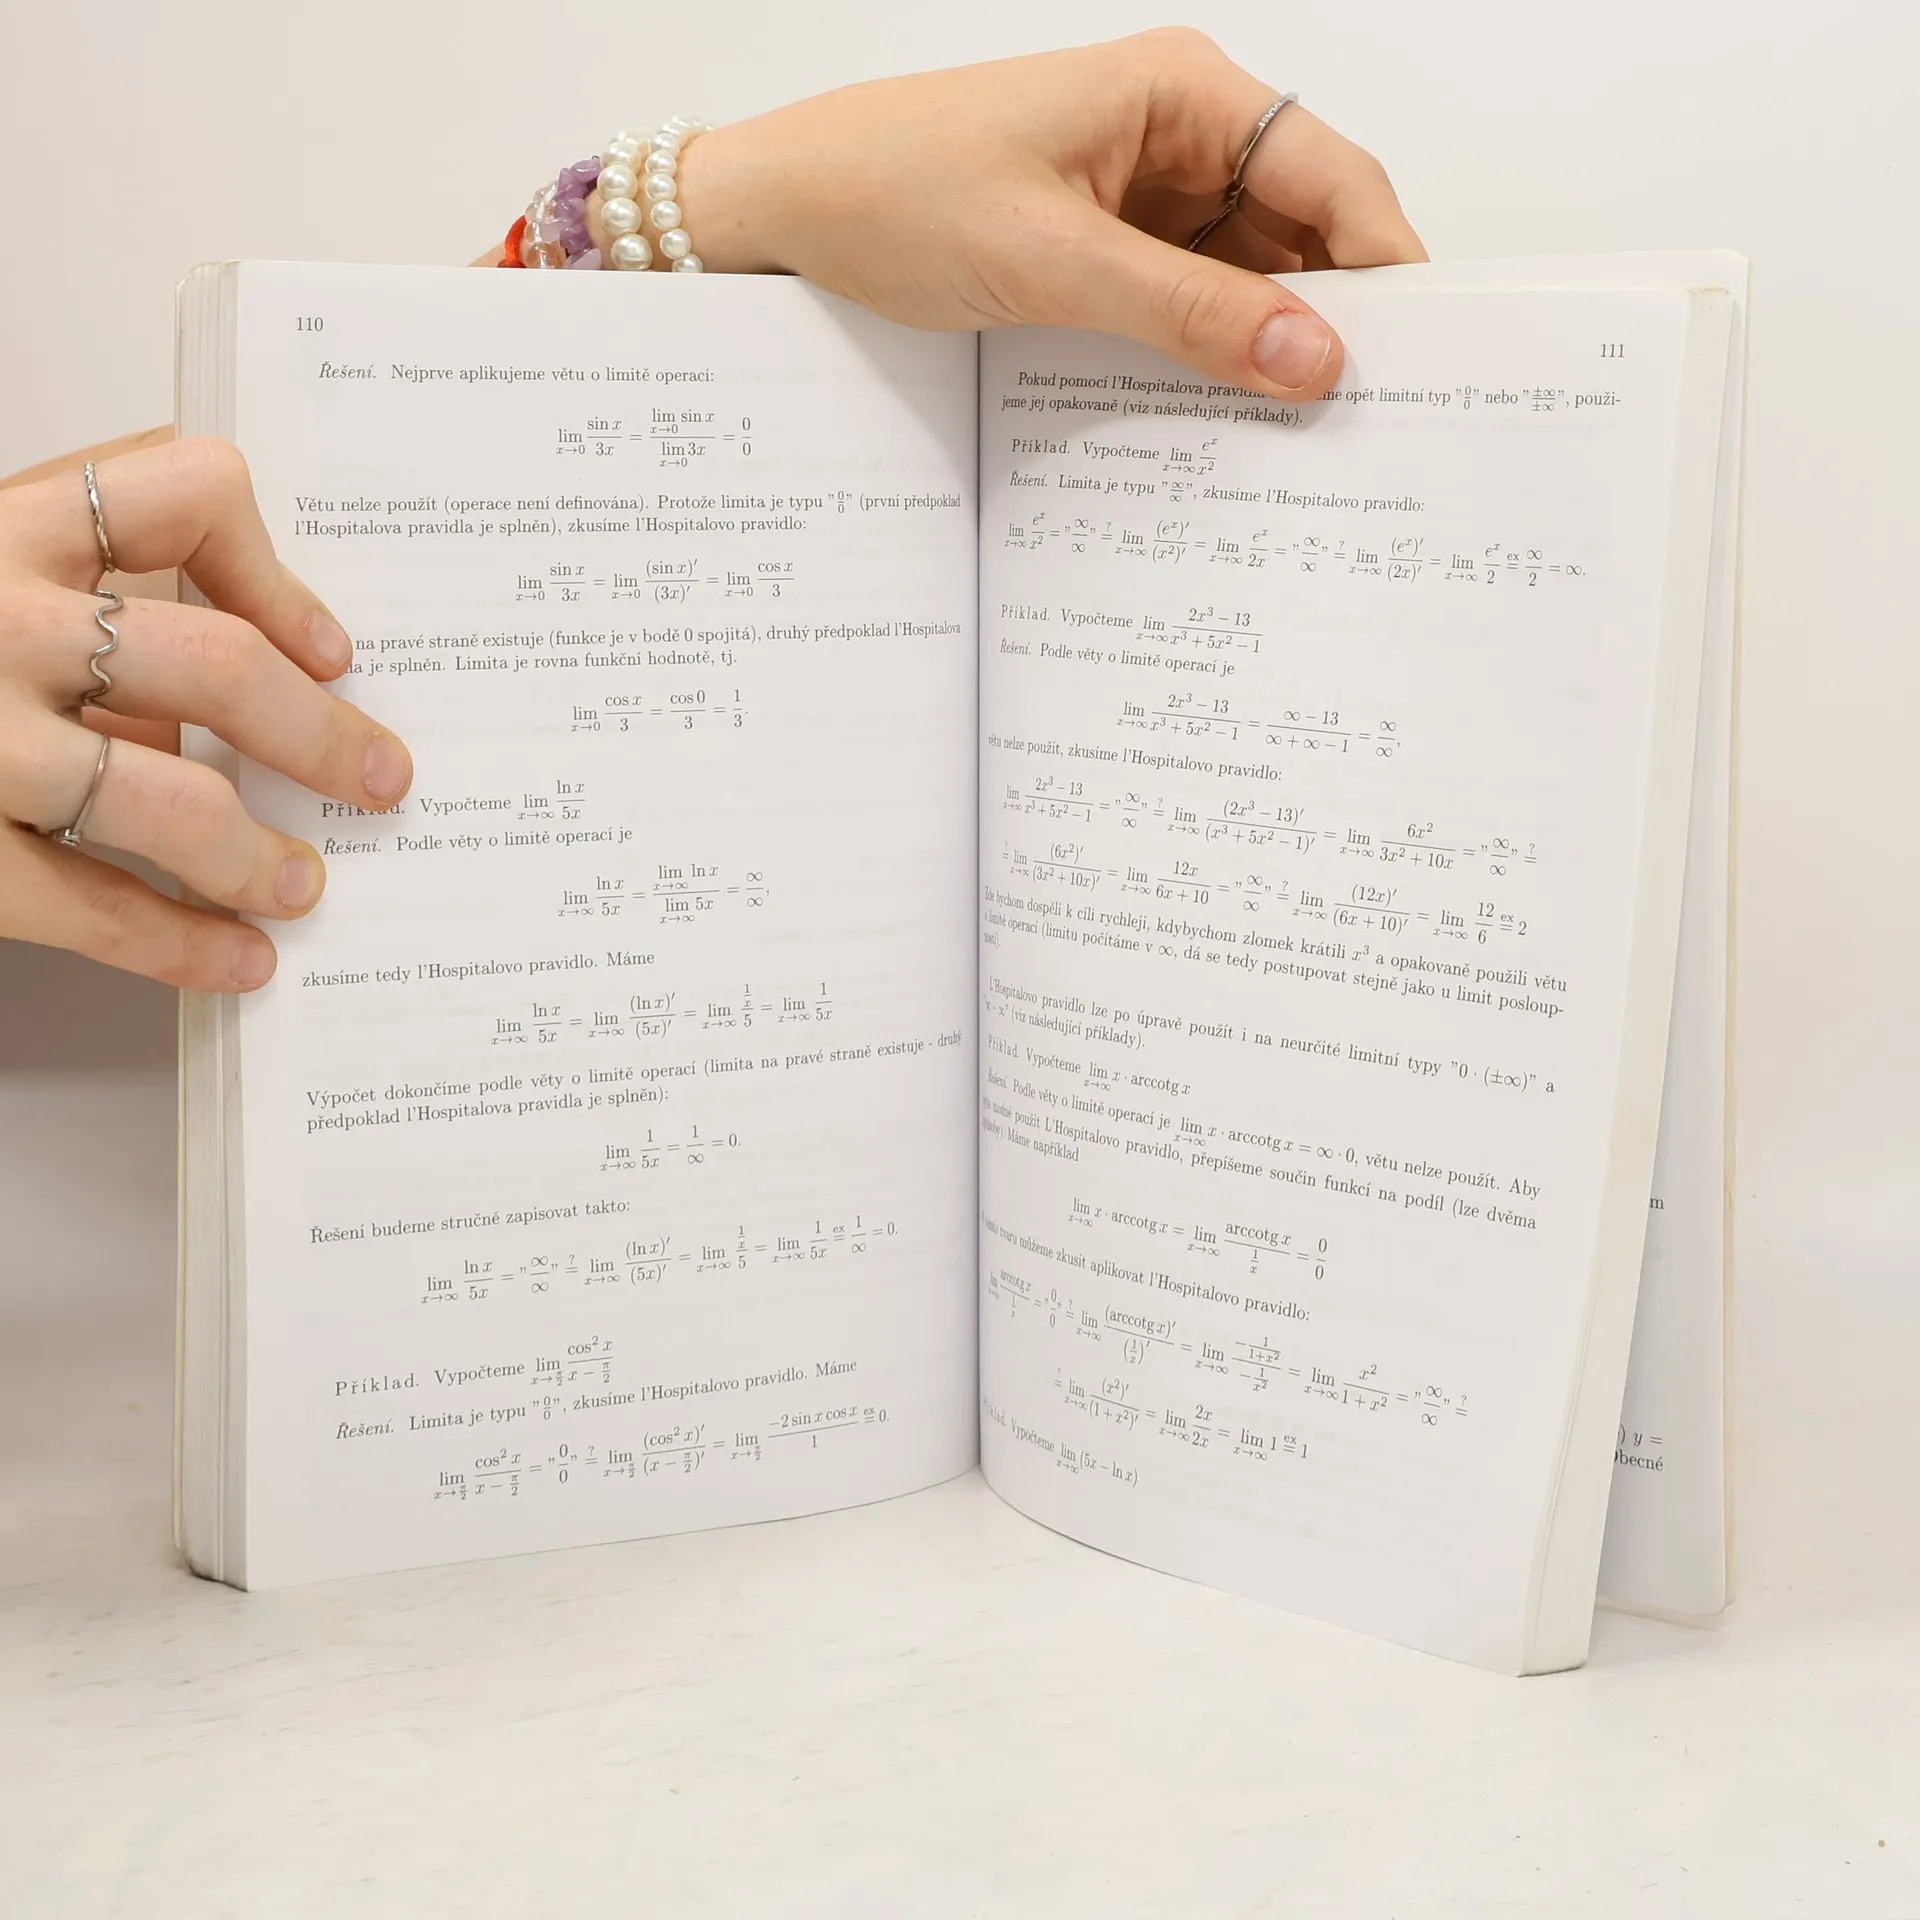 110
Řešení. Nejprve aplikujeme větu o limitě operací:
lim_{x→0} \frac{sin x}{3x} = \frac{lim_{x→0} sin x}{lim_{x→0} 3x} = \frac{0}{0}
Větu nelze použít (operace není definována). Protože limita je typu "\frac{0}{0}" (první předpoklad
l'Hospitalova pravidla je splněn), zkusíme l'Hospitalovo pravidlo:
lim_{x→0} \frac{sin x}{3x} = lim_{x→0} \frac{(sin x)'}{(3x)'} = lim_{x→0} \frac{cos x}{3}
na pravé straně existuje (funkce je v bodě 0 spojitá), druhý předpoklad l'Hospitalova
je splněn. Limita je rovna funkční hodnotě, tj.
lim_{x→0} \frac{cos x}{3} = \frac{cos 0}{3} = \frac{1}{3}.
Příklad. Vypočteme lim_{x→∞} \frac{ln x}{5x}
Řešení. Podle věty o limitě operací je
lim_{x→∞} \frac{ln x}{5x} = \frac{lim_{x→∞} ln x}{lim_{x→∞} 5x} = \frac{∞}{∞},
zkusíme tedy l'Hospitalovo pravidlo. Máme
lim_{x→∞} \frac{ln x}{5x} = lim_{x→∞} \frac{(ln x)'}{(5x)'} = lim_{x→∞} \frac{\frac{1}{x}}{5} = lim_{x→∞} \frac{1}{5x}
Výpočet dokončíme podle věty o limitě operací (limita na pravé straně existuje - druhý
předpoklad l'Hospitalova pravidla je splněn):
lim_{x→∞} \frac{1}{5x} = \frac{1}{∞} = 0.
Řešení budeme stručně zapisovat takto:
lim_{x→∞} \frac{ln x}{5x} = "\frac{∞}{∞}" \overset{?}{=} lim_{x→∞} \frac{(ln x)'}{(5x)'} = lim_{x→∞} \frac{\frac{1}{x}}{5} = lim_{x→∞} \frac{1}{5x} \overset{ex}{=} \frac{1}{∞} = 0.
Příklad. Vypočteme lim_{x→\frac{π}{2}} \frac{cos² x}{x − \frac{π}{2}}
Řešení. Limita je typu "\frac{0}{0}", zkusíme l'Hospitalovo pravidlo. Máme
lim_{x→\frac{π}{2}} \frac{cos² x}{x − \frac{π}{2}} = "\frac{0}{0}" \overset{?}{=} lim_{x→\frac{π}{2}} \frac{(cos² x)'}{(x − \frac{π}{2})'} = lim_{x→\frac{π}{2}} \frac{−2 sin x cos x}{1} \overset{ex}{=} 0.
111
Pokud pomocí l'Hospitalova opět limitní typ "\frac{0}{0}" nebo "\frac{±∞}{±∞}", použi-
jeme jej opakovaně (viz následující příklady).
Příklad. Vypočteme lim_{x→∞} \frac{e^x}{x²}
Řešení. Limita je typu "\frac{∞}{∞}", zkusíme l'Hospitalovo pravidlo:
lim_{x→∞} \frac{e^x}{x²} = "\frac{∞}{∞}" \overset{?}{=} lim_{x→∞} \frac{(e^x)'}{(x²)'} = lim_{x→∞} \frac{e^x}{2x} = "\frac{∞}{∞}" \overset{?}{=} lim_{x→∞} \frac{(e^x)'}{(2x)'} = lim_{x→∞} \frac{e^x}{2} \overset{ex}{=} \frac{∞}{2} = ∞.
Příklad. Vypočteme lim_{x→∞} \frac{2x³ − 13}{x³ + 5x² − 1}
Řešení. Podle věty o limitě operací je
lim_{x→∞} \frac{2x³ − 13}{x³ + 5x² − 1} = \frac{∞ − 13}{∞ + ∞ − 1} = \frac{∞}{∞},
větu nelze použít, zkusíme l'Hospitalovo pravidlo:
lim_{x→∞} \frac{2x³ − 13}{x³ + 5x² − 1} = "\frac{∞}{∞}" \overset{?}{=} lim_{x→∞} \frac{(2x³ − 13)'}{(x³ + 5x² − 1)'} = lim_{x→∞} \frac{6x²}{3x² + 10x} = "\frac{∞}{∞}" \overset{?}{=}
\overset{?}{=} lim_{x→∞} \frac{(6x²)'}{(3x² + 10x)'} = lim_{x→∞} \frac{12x}{6x + 10} = "\frac{∞}{∞}" \overset{?}{=} lim_{x→∞} \frac{(12x)'}{(6x + 10)'} = lim_{x→∞} \frac{12}{6} \overset{ex}{=} 2
Zde bychom dospěli k cíli rychleji, kdybychom zlomek krátili x³ a opakovaně použili větu
o limitě operací (limitu počítáme v ∞, dá se tedy postupovat stejně jako u limit posloup-
ností).
L'Hospitalovo pravidlo lze po úpravě použít i na neurčité limitní typy "0 · (±∞)" a
"∞ − ∞" (viz následující příklady).
Příklad. Vypočteme lim_{x→∞} x · arccotg x
Řešení. Podle věty o limitě operací je lim_{x→∞} x · arccotg x = ∞ · 0, větu nelze použít. Aby
bylo možné použít L'Hospitalovo pravidlo, přepíšeme součin funkcí na podíl (lze dvěma
způsoby). Máme například
lim_{x→∞} x · arccotg x = lim_{x→∞} \frac{arccotg x}{\frac{1}{x}} = \frac{0}{0}
tvaru můžeme zkusit aplikovat l'Hospitalovo pravidlo:
lim_{x→∞} \frac{arccotg x}{\frac{1}{x}} = "\frac{0}{0}" \overset{?}{=} lim_{x→∞} \frac{(arccotg x)'}{(\frac{1}{x})'} = lim_{x→∞} \frac{−\frac{1}{1+x²}}{−\frac{1}{x²}} = lim_{x→∞} \frac{x²}{1 + x²} = "\frac{∞}{∞}" \overset{?}{=}
\overset{?}{=} lim_{x→∞} \frac{(x²)'}{(1 + x²)'} = lim_{x→∞} \frac{2x}{2x} = lim_{x→∞} 1 \overset{ex}{=} 1
Příklad. Vypočteme lim_{x→∞} (5x − ln x)
m
) y =
becné